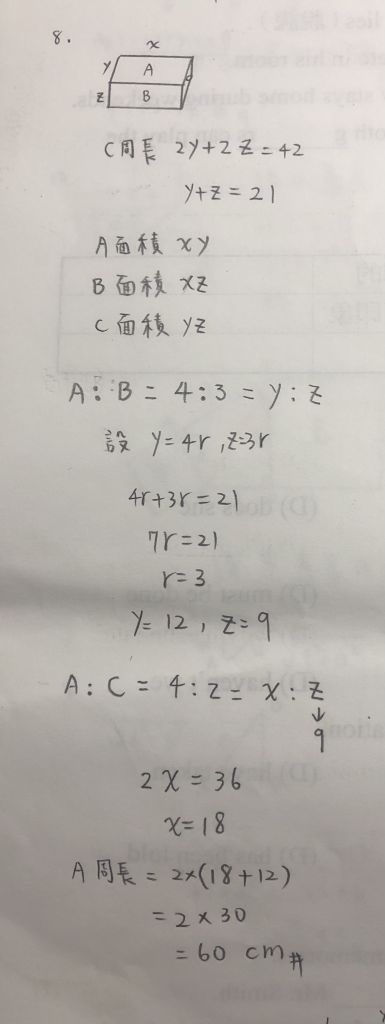 8.
x
y A
z B
C周長 2y+2z=42
y+z=21
A面積 xy
B面積 xz
C面積 yz
A:B=4:3=y:z
設 y=4r,z=3r
4r+3r=21
7r=21
r=3
y=12, z=9
A:C=4:2=x:z
↓
9
2x=36
x=18
A周長=2×(18+12)
=2×30
=60 cm#